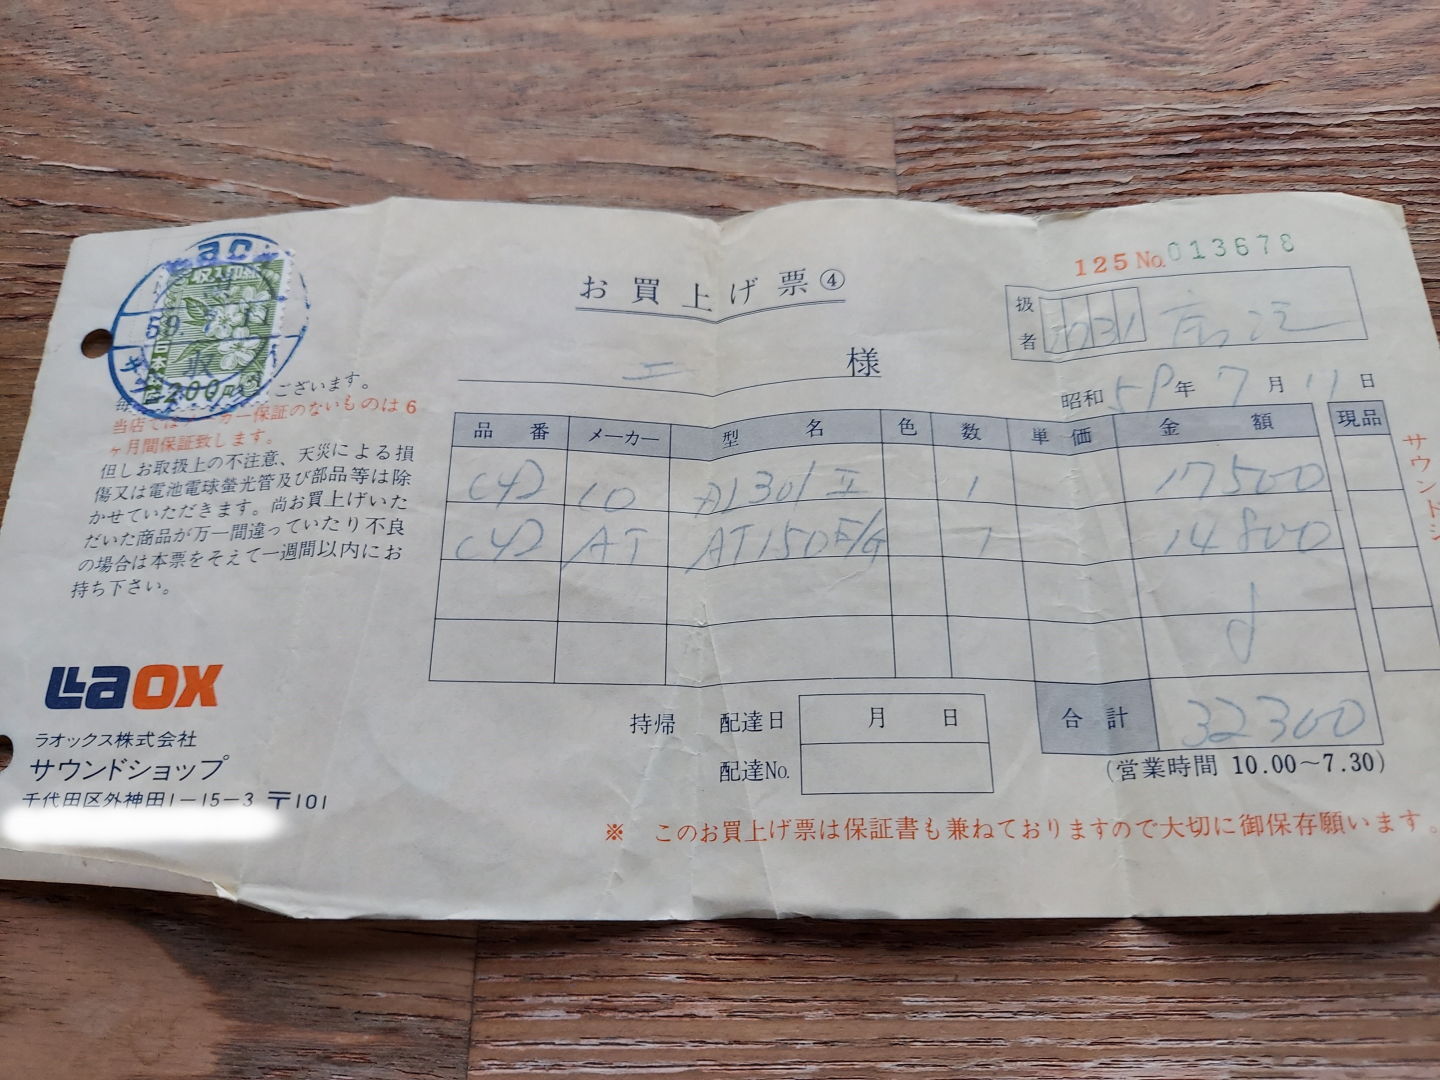 お買上げ票④
125 No. 013678
様
扱者
昭和59年7月11日
収入印紙
59.7.11
200円
ございます。
保証のないものは6
ヶ月間保証致します。
但しお取扱上の不注意、天災による損
傷又は電池電球螢光管及び部品等は除
かせていただきます。尚お買上げいた
だいた商品が万一間違っていたり不良
の場合は本票をそえて一週間以内にお
持ち下さい。
品番 メーカー 型名 色 数 単価 金額 現品
AT 1 17500
AT AT150E/G 1 14800
合計 32300
持帰 配達日 月 日
配達No.
(営業時間 10.00～7.30)
LaOX
ラオックス株式会社
サウンドショップ
千代田区外神田1-15-3 〒101
※ このお買上げ票は保証書も兼ねておりますので大切に御保存願います。
サウンドシ